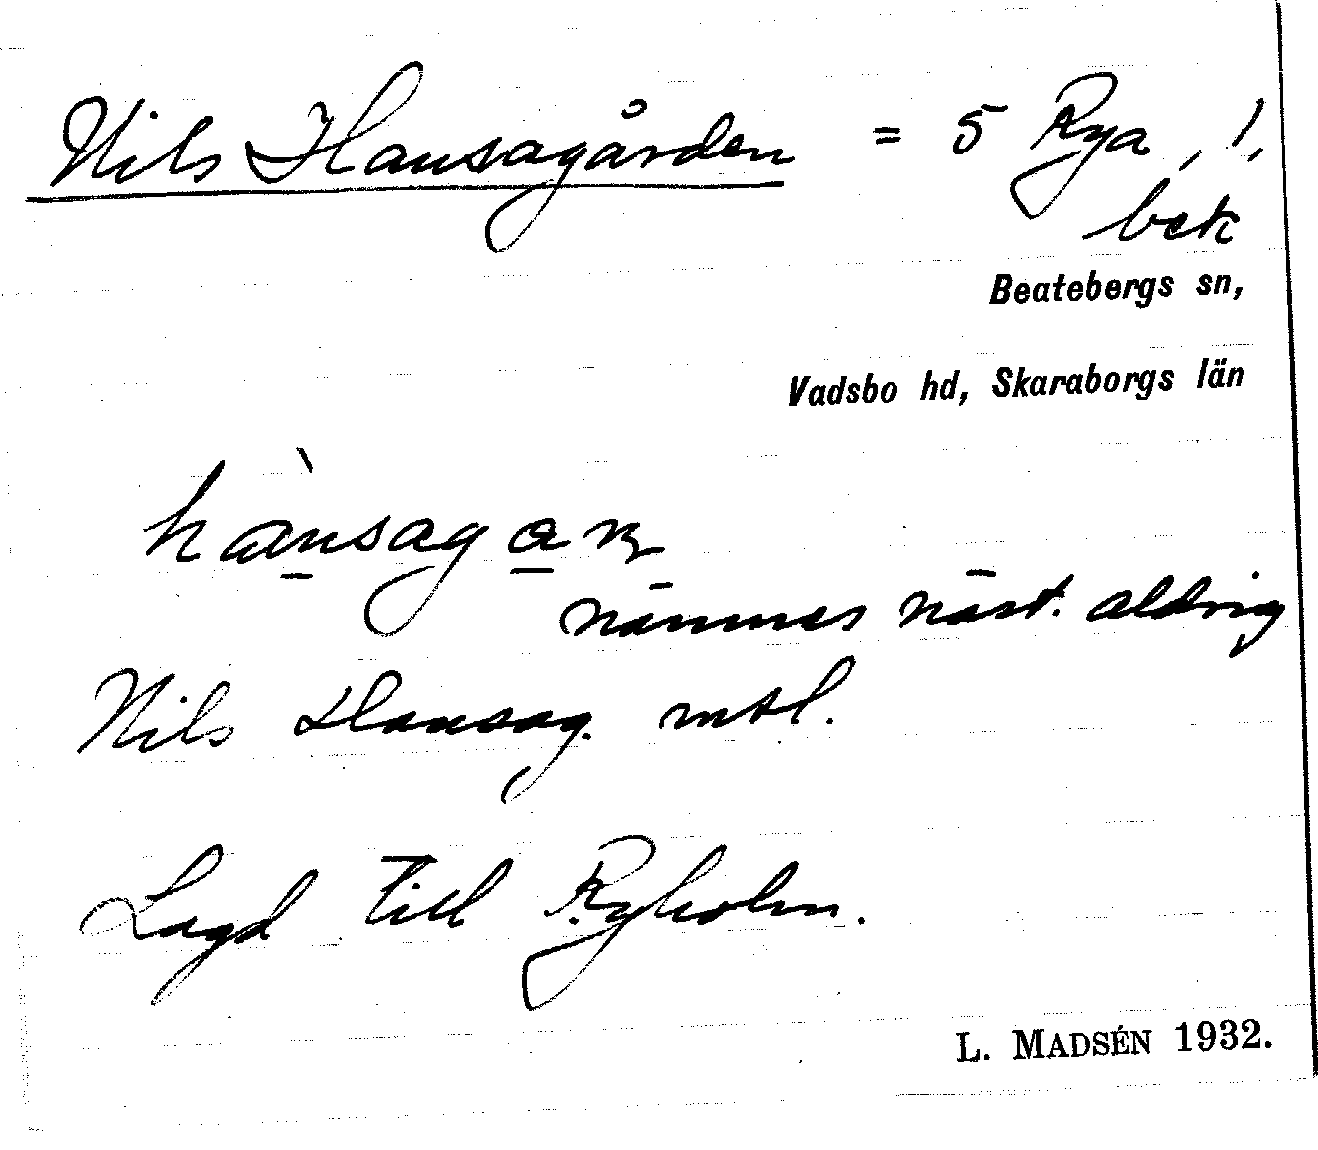 Nils Hansagården = 5 Rya, 1,
bek
Beatebergs sn,
Vadsbo hd, Skaraborgs län
hànsagan
nämnes näst. aldrig
Nils Hansag. mtl.
Lagd till Ryholm.
L. MADSÉN 1932.